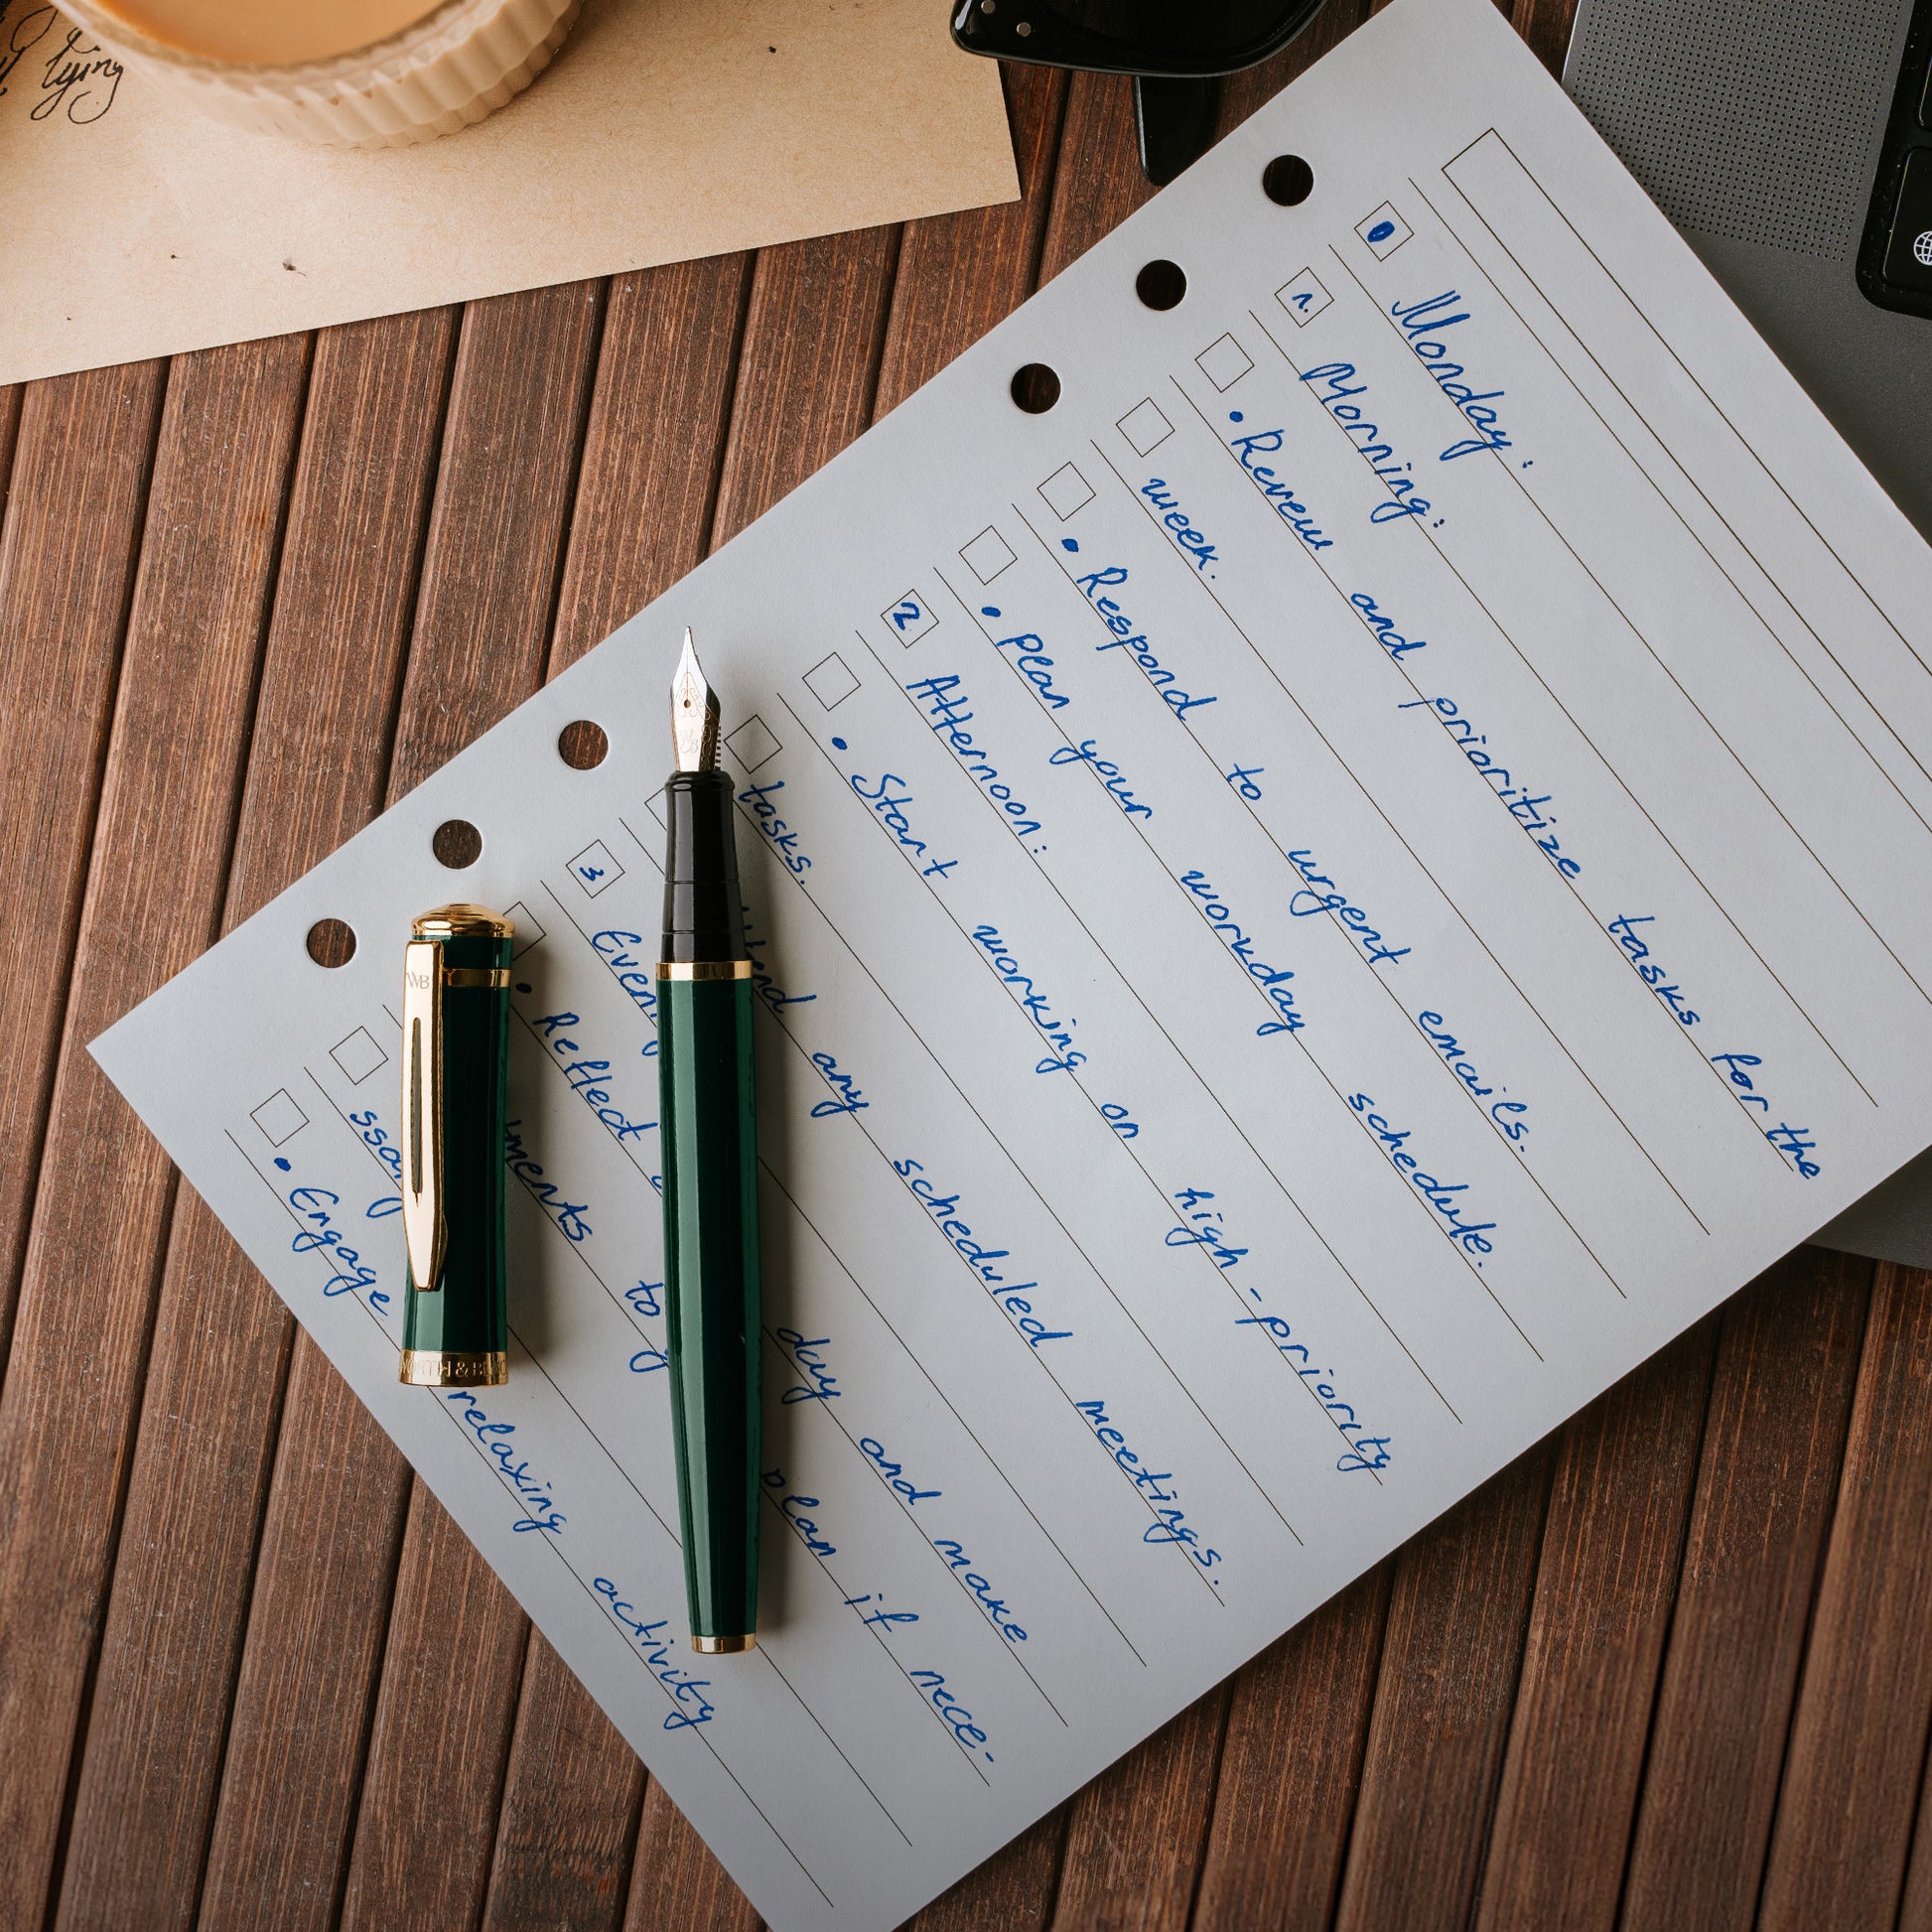 lying
Monday:
1. Morning:
• Review and prioritize tasks for the
week.
• Respond to urgent emails.
• plan your workday schedule.
2 Afternoon:
• Start working on high-priority
tasks.
any scheduled meetings.
3
• Reflect day and make
to plan if nece-
• Engage relaxing activity
WB